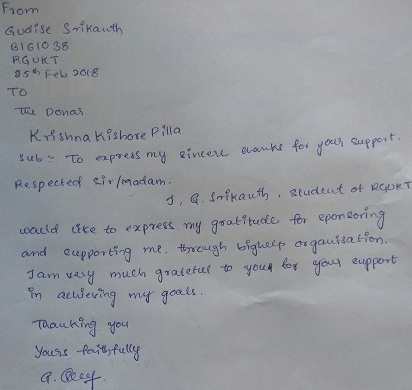 From
Gudise Srikanth
B161038
RGUKT
25th Feb 2018
TO
The Donar
Krishna Kishore Pilla
Sub:- To express my sincere thanks for your support.
Respected Sir/Madam.
I, G. Srikanth, student of RGUKT
would like to express my gratitude for sponsoring
and supporting me through bighelp organisation.
I am very much grateful to your for your support
in achieving my goals.
Thanking you
Yours faithfully